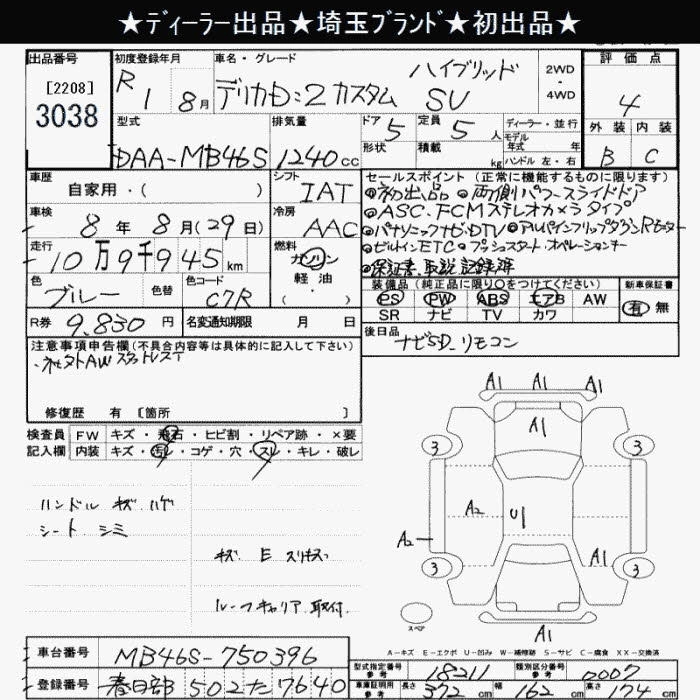 ★ディーラー出品★埼玉ブランド★初出品★
出品番号
[2208]
3038
初度登録年月
R 1 8月
車名・グレード
デリカD:2カスタム
ハイブリッド
SV
2WD
・
4WD
評価点
4
外装 内装
B C
型式
DAA-MB46S
排気量
1240cc
ドア 5
形状
定員 5人
積載 kg
ディーラー・並行
モデル
年式 年
ハンドル 左・右
車歴
自家用・( )
シフト
IAT
車検
8年 8月(29日)
冷房
AAC
走行
10万9千945km
燃料
ガソリン
軽油
( )
色
ブルー
色替
色コード
C7R
R券 9,830円
名変通知期限 月 日
セールスポイント(正常に機能するものに限ります)
◎初出品 ◎両側パワースライドドア
◎ASC.FCMステレオカメラタイプ
◎パナソニックナビ.DTV ◎アルパインフリップダウンRモニター
◎ビルトインETC ◎プッシュスタート.オペレーションキー
◎保証書、取説、記録簿
装備品(純正品に限り○をつけてください)
PS PW ABS エアB AW
SR ナビ TV カワ
新車保証書
有 無
後日品
ナビSD.リモコン
注意事項申告欄(不具合内容等は具体的に記入して下さい)
修復歴 有 [箇所 ]
検査員
記入欄
FW キズ・飛石・ヒビ割・リペア跡・×要
内装 キズ・汚レ・コゲ・穴・スレ・キレ・破レ
ハンドル キズ ハゲ
シート シミ
キズ E スリキズ
ルーフキャリア取付
A1 A1 A1
A1
3 3
A2 U1
A2 A1
3 3
スペア
A1
A-キズ E-エクボ U-凹み W-補修跡 S-サビ C-腐食 XX-交換済
車台番号 MB46S-750396
登録番号 春日部 502た7640
型式指定番号
参考
18211
類別区分番号
参考
0007
車庫証明用
参考
長さ 372cm 幅 162cm 高さ 174cm